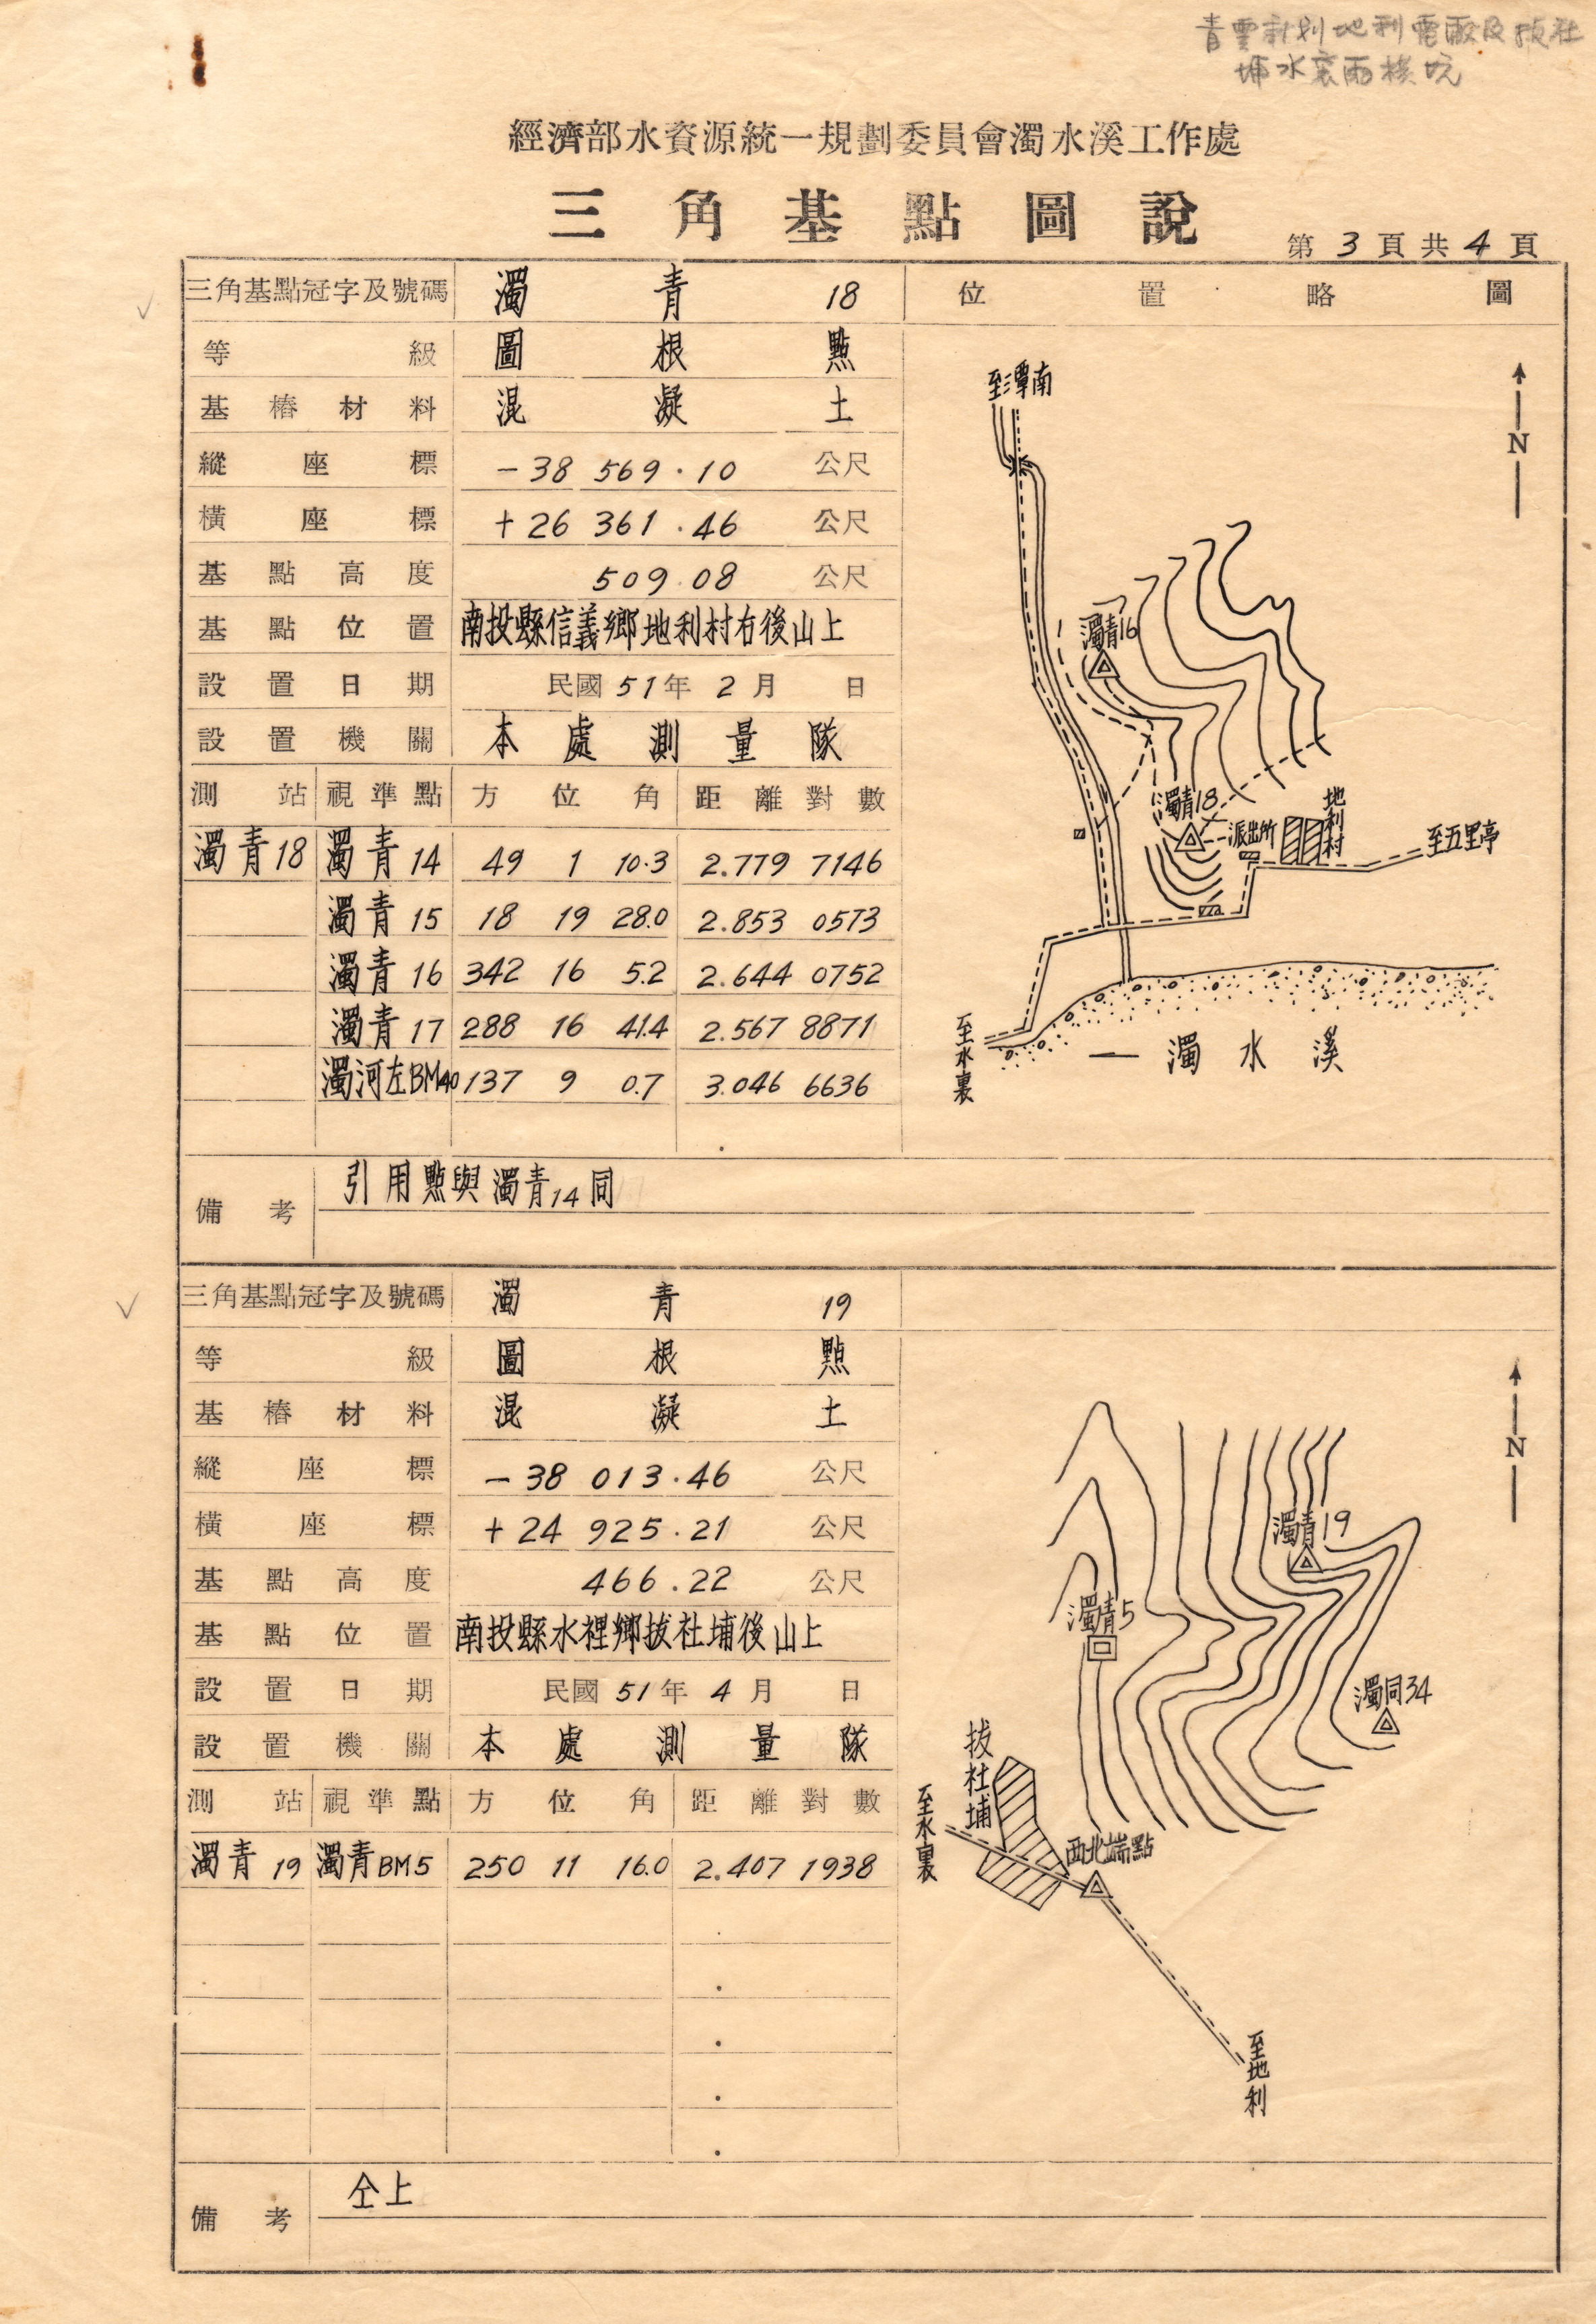 青雲計划地利電廠及拔社
埔水裏兩檨坑
經濟部水資源統一規劃委員會濁水溪工作處
三角基點圖說
第3頁共4頁
三角基點冠字及號碼 濁青18 位置略圖
等級 圖根點
基樁材料 混凝土
縱座標 -38 569.10 公尺
橫座標 +26 361.46 公尺
基點高度 509.08 公尺
基點位置 南投縣信義鄉地利村右後山上
設置日期 民國51年2月 日
設置機關 本處測量隊
測站 視準點 方位角 距離對數
濁青18 濁青14 49 1 10.3 2.779 7146
濁青15 18 19 28.0 2.853 0573
濁青16 342 16 5.2 2.644 0752
濁青17 288 16 41.4 2.567 8871
濁河左BM40 137 9 0.7 3.046 6636
備考 引用點與濁青14同
至潭南
N
濁青16
濁青18
派出所
地利村
至五里亭
至水裏
濁水溪
三角基點冠字及號碼 濁青19
等級 圖根點
基樁材料 混凝土
縱座標 -38 013.46 公尺
橫座標 +24 925.21 公尺
基點高度 466.22 公尺
基點位置 南投縣水裡鄉拔社埔後山上
設置日期 民國51年4月 日
設置機關 本處測量隊
測站 視準點 方位角 距離對數
濁青19 濁青BM5 250 11 16.0 2.407 1938
備考 仝上
N
濁青19
濁青5
濁同34
拔社埔
至水裏
西北端點
至地利